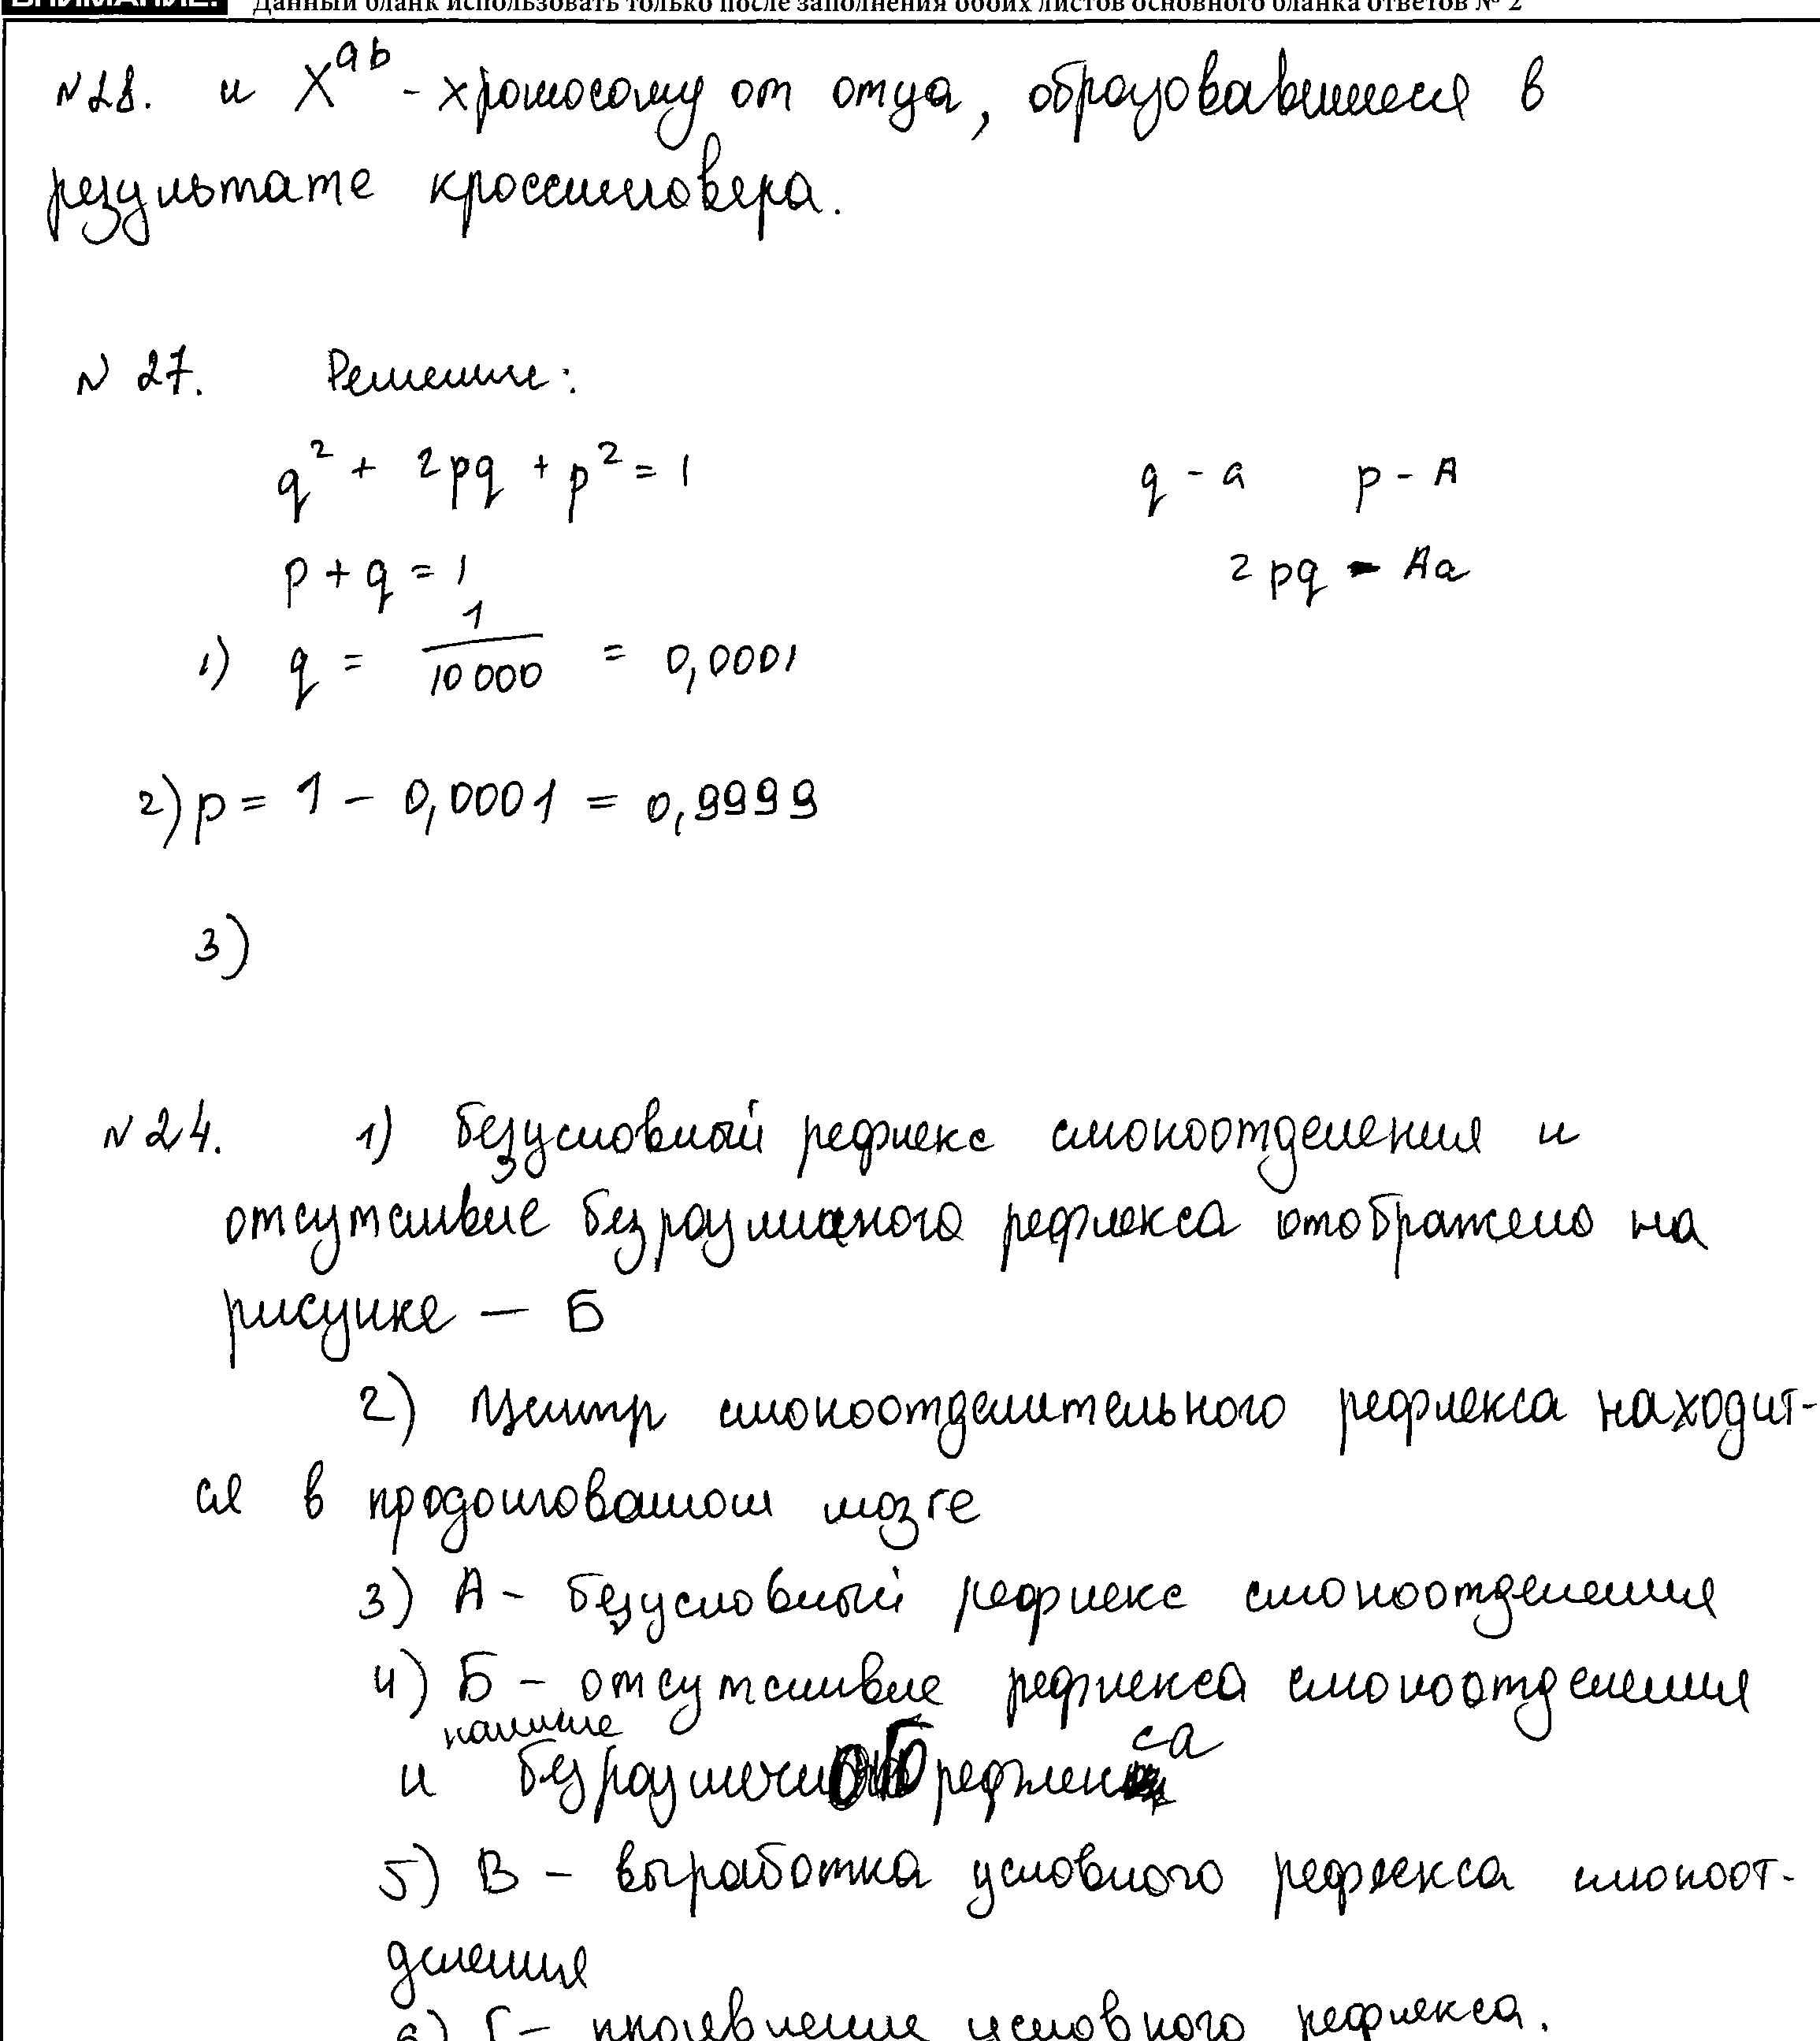 ВНИМАНИЕ! Данный бланк использовать только после заполнения обоих листов основного бланка ответов № 2
№28. и X^ab - хромосому от отца, образовавшиеся в
результате кроссинговера.
№ 27. Решение:
q² + 2pq + p² = 1 q - a p - A
p + q = 1 2pq - Aa
1) q = 1/10 000 = 0,0001
2) p = 1 - 0,0001 = 0,9999
3)
№24. 1) безусловный рефлекс слюноотделения и
отсутствие безразличного рефлекса отображено на
рисунке — Б
2) Центр слюноотделительного рефлекса находит-
ся в продолговатом мозге
3) А - безусловный рефлекс слюноотделения
4) Б - отсутствие рефлекса слюноотделения
и наличие безразличного рефлекса
5) В - выработка условного рефлекса слюноот-
деления
6) Г - проявление условного рефлекса.